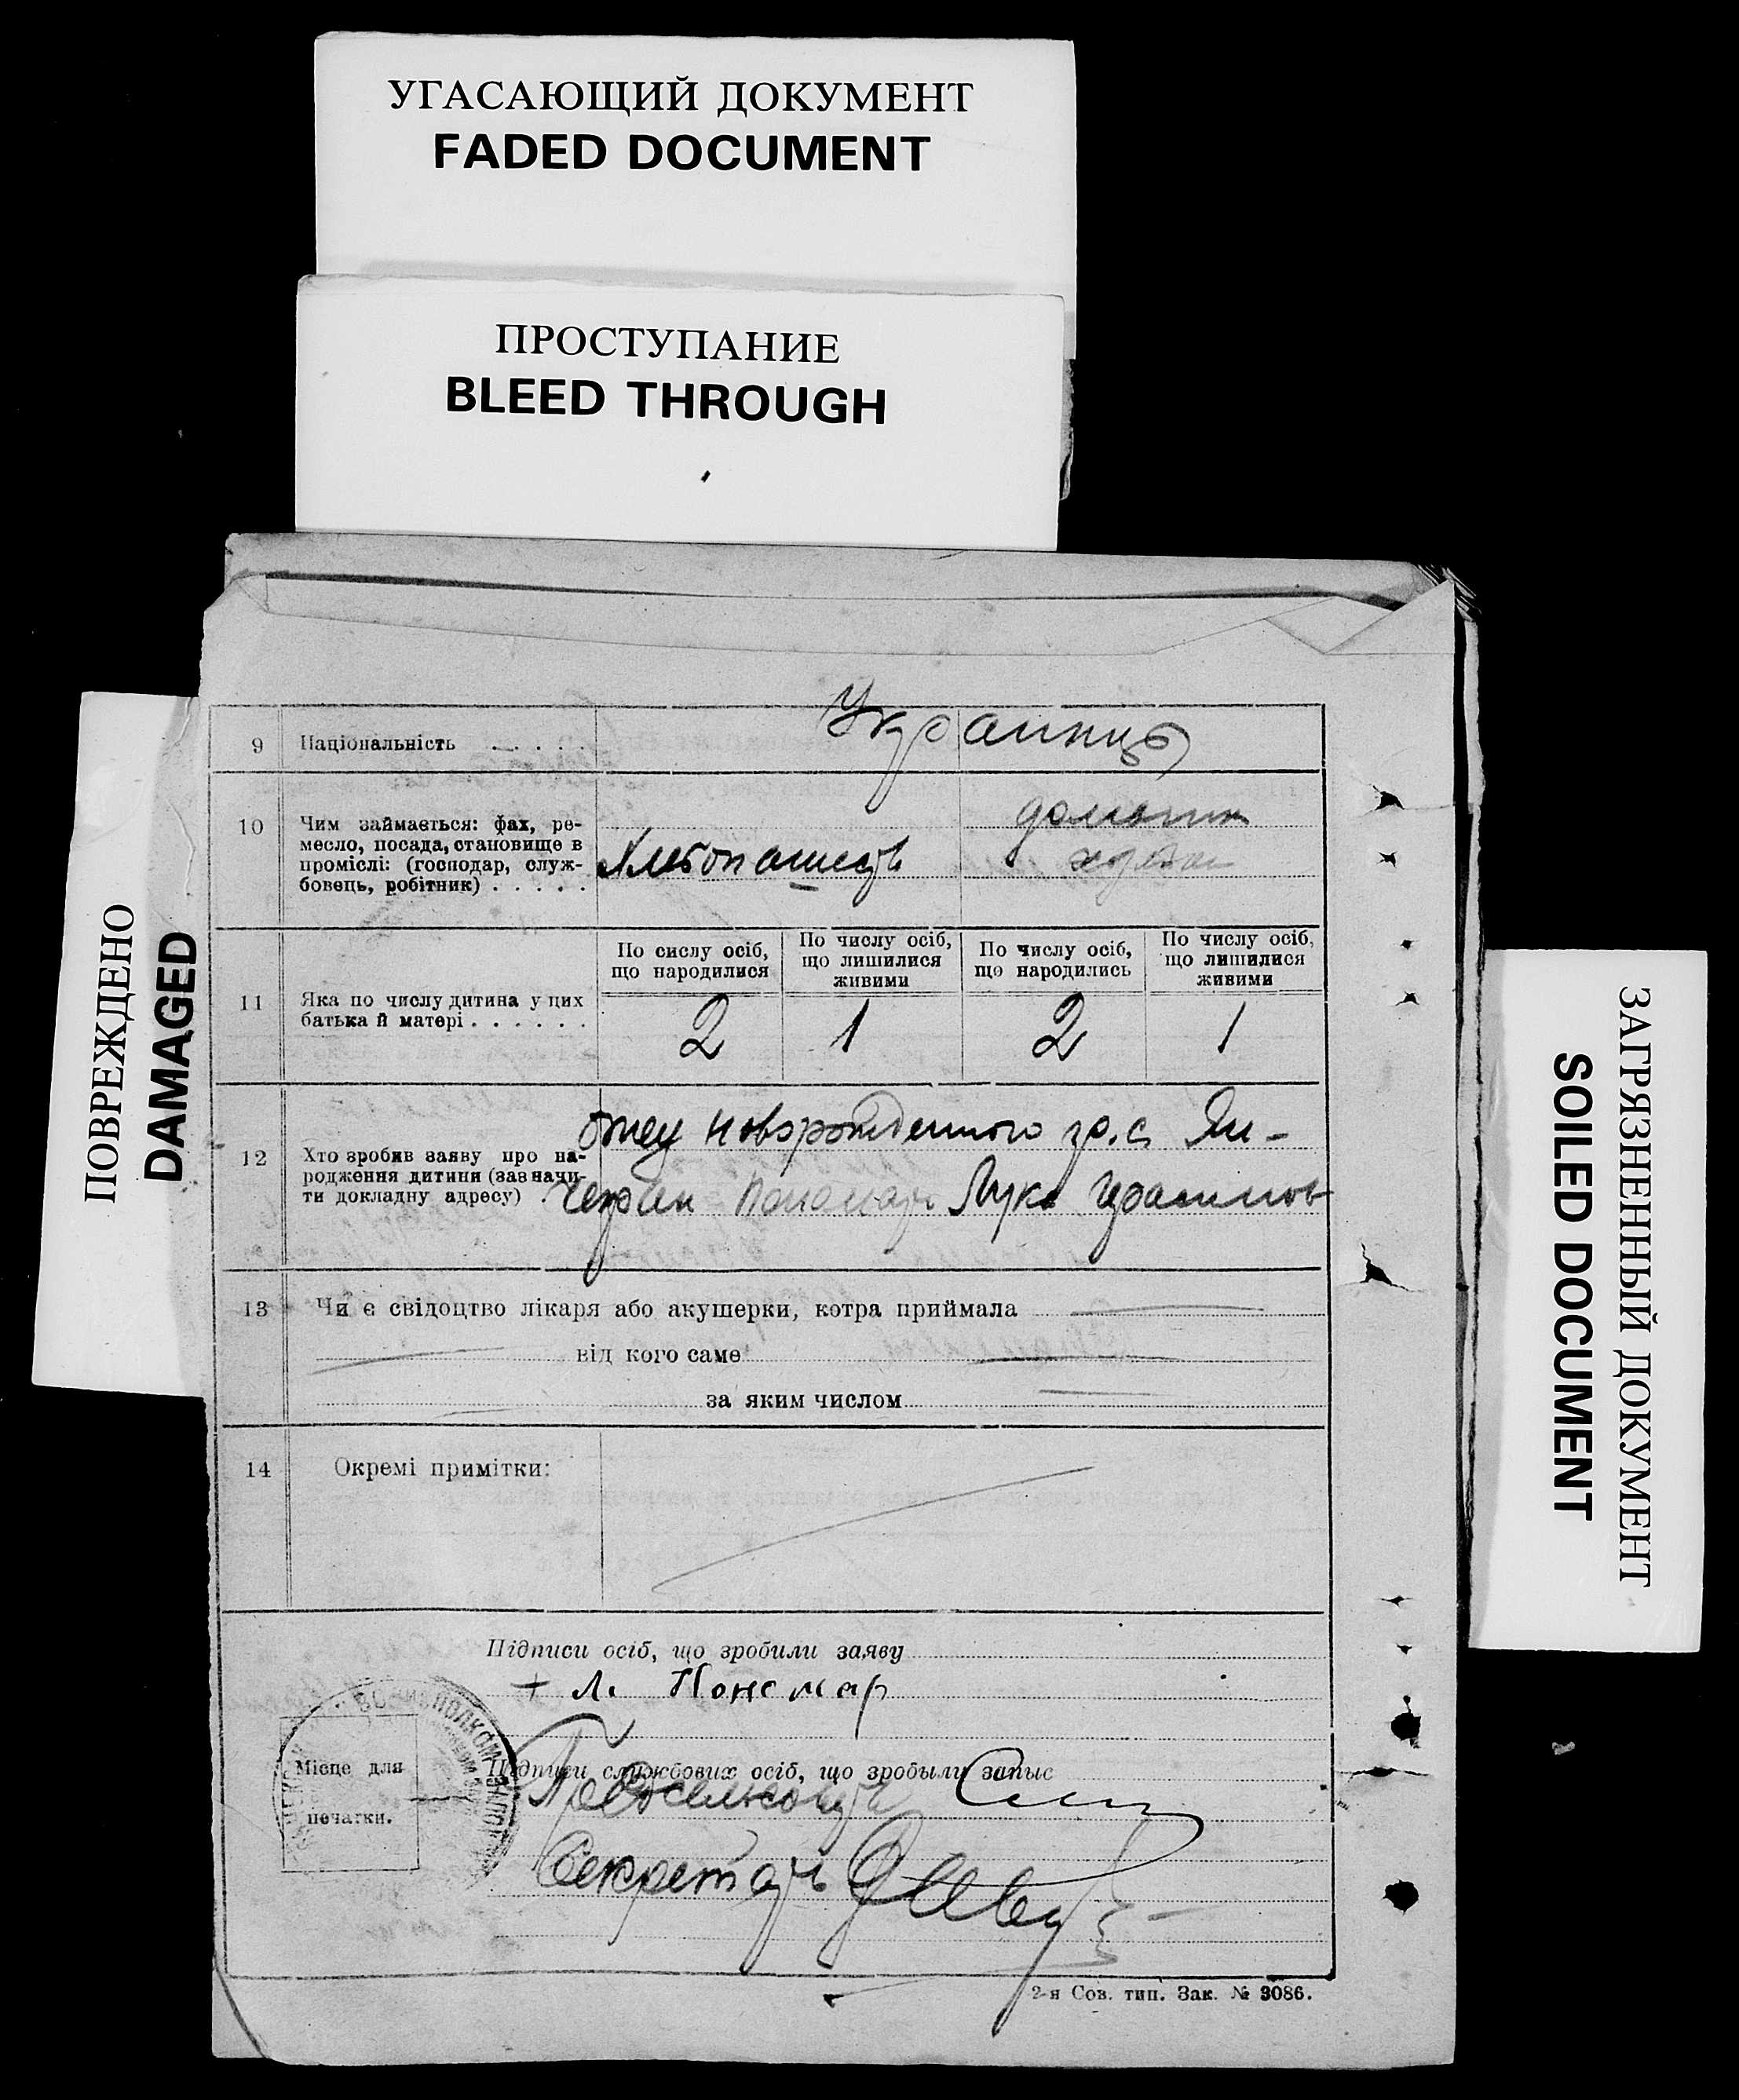 УГАСАЮЩИЙ ДОКУМЕНТ
FADED DOCUMENT
ПРОСТУПАНИЕ
BLEED THROUGH
ПОВРЕЖДЕНО
DAMAGED
ЗАГРЯЗНЕННЫЙ ДОКУМЕНТ
SOILED DOCUMENT
9 Національність . . . . .
Украинцы
10 Чим займається: фах, ре-
месло, посада, становище в
проміслі: (господар, служ-
бовець, робітник) . . . . .
Хлебопашец
домашн
11 Яка по числу дитина у цих
батька й матері . . . . . .
По сислу осіб,
що народилися
По числу осіб,
що лишилися
живими
По числу осіб,
що народились
По числу осіб,
що лишилися
живими
2 1 2 1
12 Хто зробив заяву про на-
родження дитини (зазначи-
ти докладну адресу) .
отец новорожденного
Пономар Лука
13 Чи є свідоцтво лікаря або акушерки, котра приймала
від кого саме
за яким числом
14 Окремі примітки:
Підписи осіб, що зробили заяву
+ Л. Пономар
Місце для
печатки.
Підписи службових осіб, що зробыли запыс
Секретарь
2-я Сов. тип. Зак. № 3086.